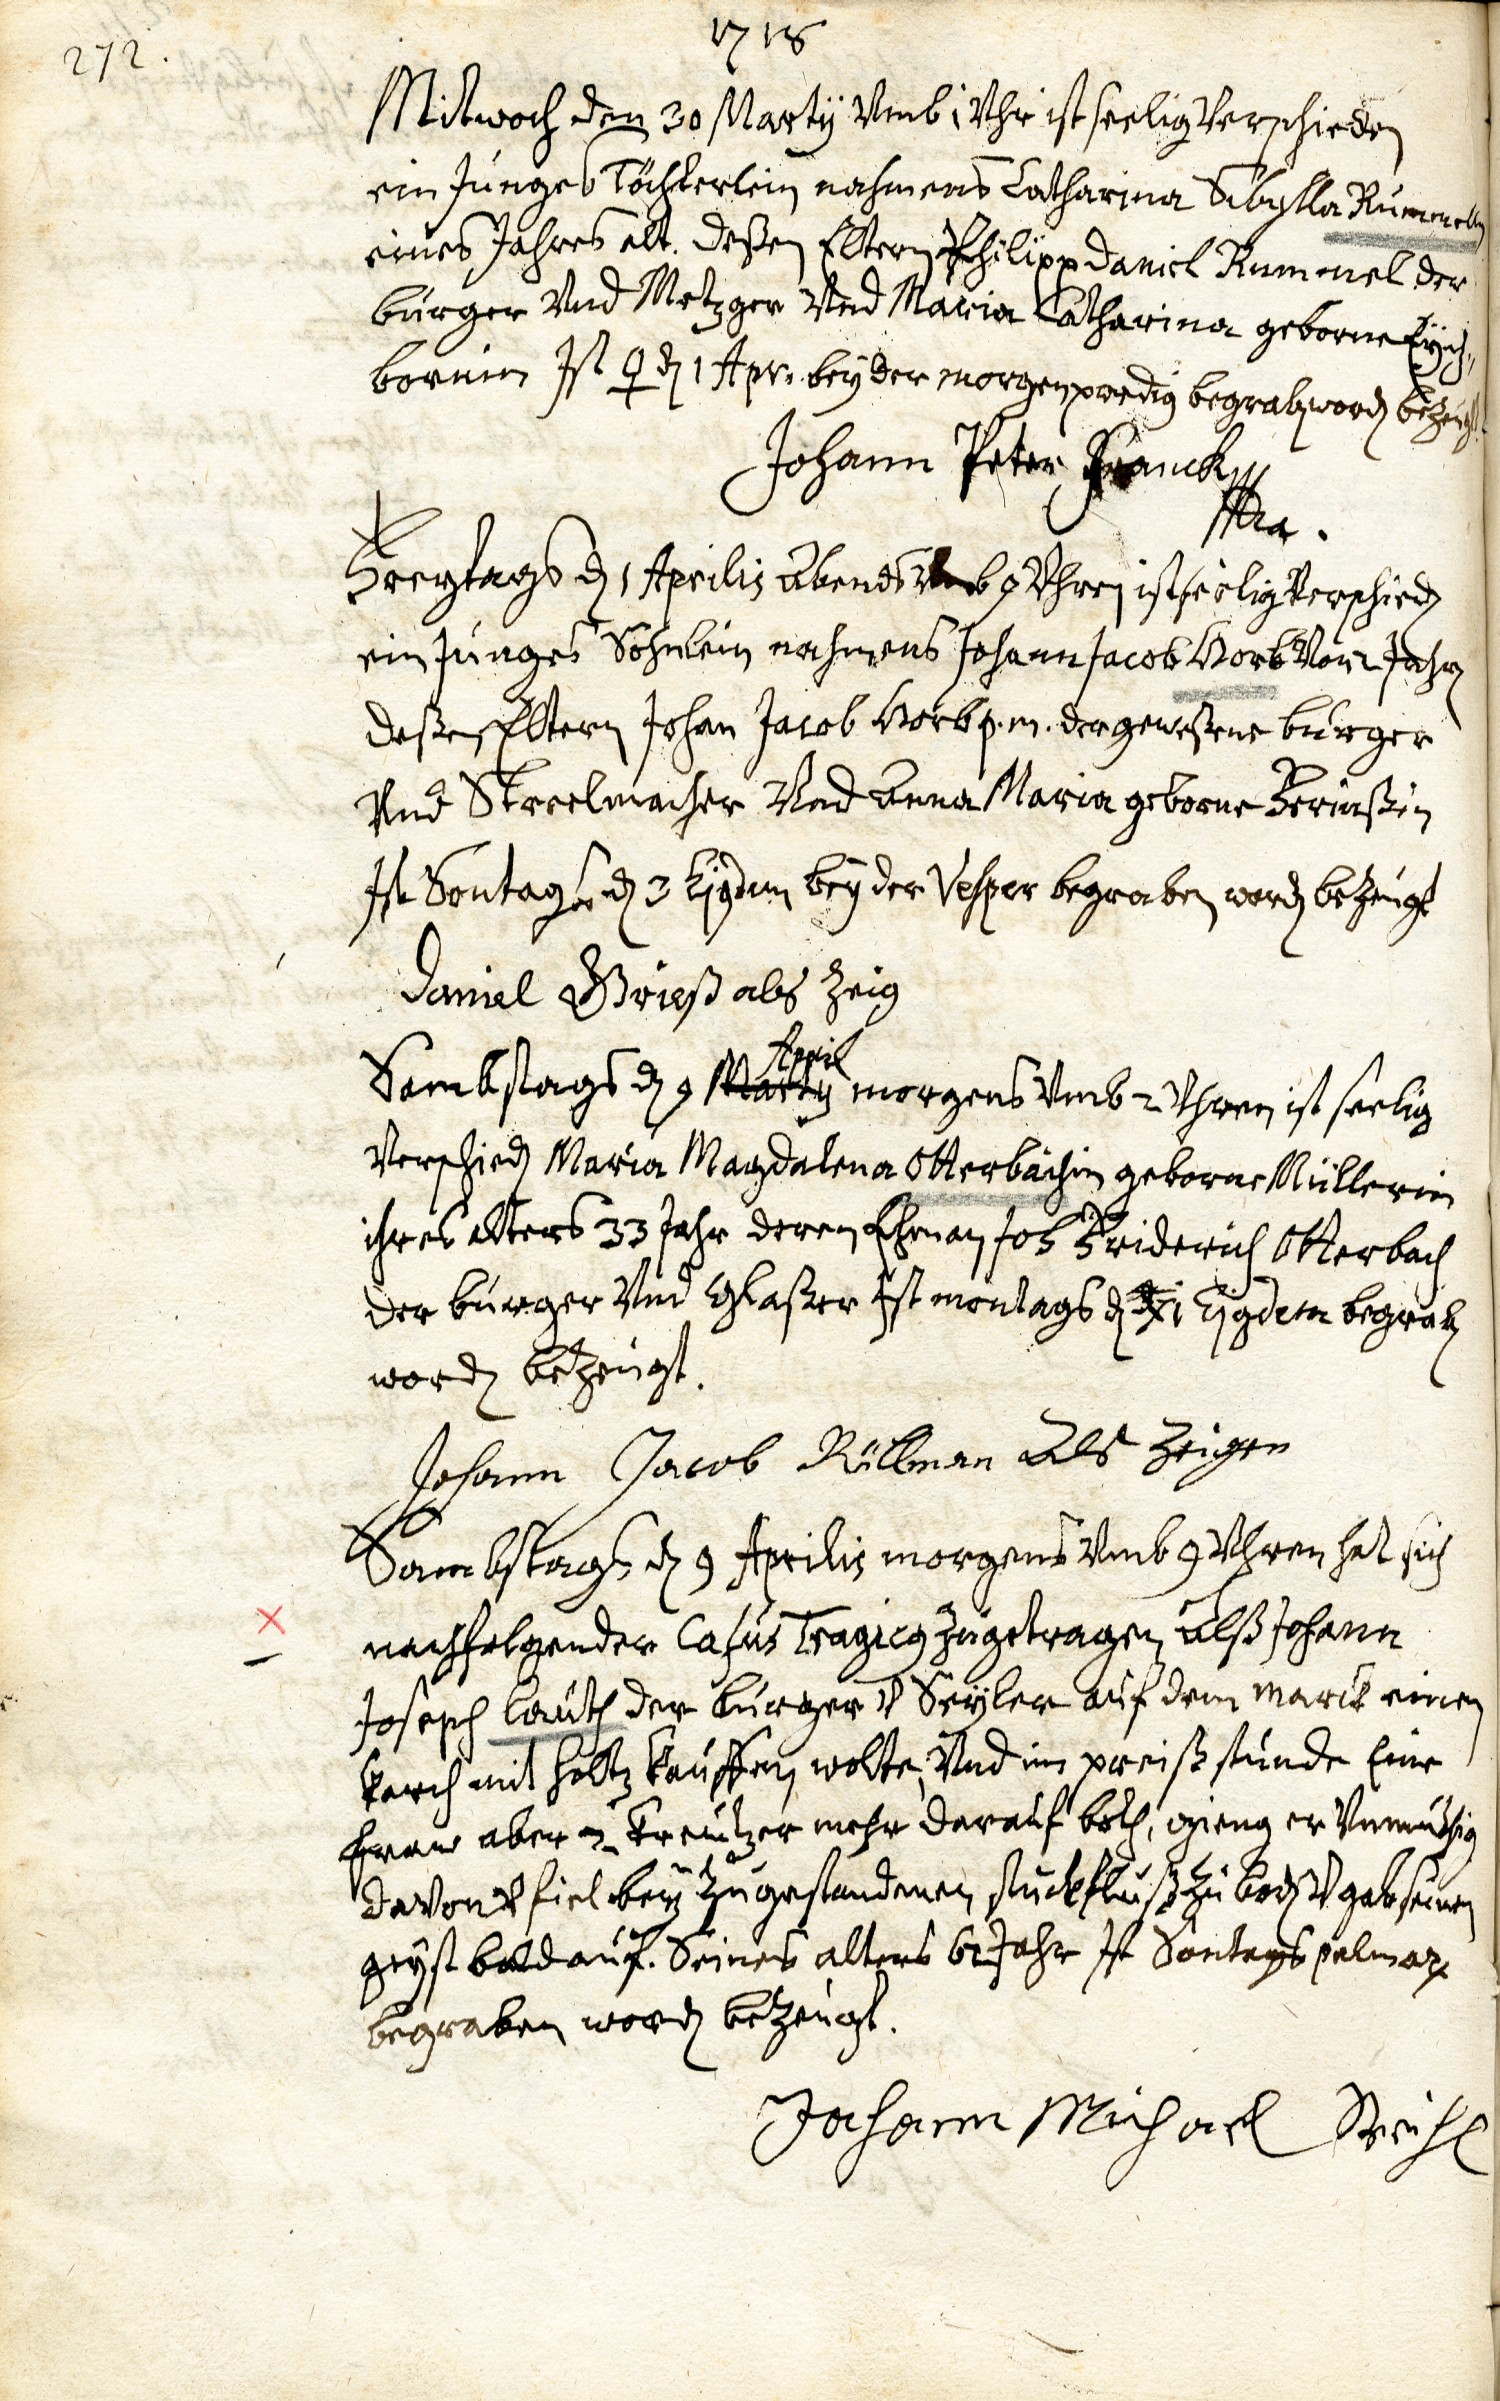 272.
1718
Mitwoch den 30 Martij Vmb 1 Vhr ist seelig Verschieden
ein Junges Töchterlein nahmens Catharina Sibylla Rummelin
eines Jahres alt. deßen Eltern Philipp Daniel Rummel der
burger Vnd Metzger Vnd Maria Catharina geborne
bornin Ist ♀ d 1 Apr. bey der morgenpredig begrab word bezeugt
Johann Peter Franck
Freytags d 1 Aprilis Abends Vmb 9 Vhren ist seelig Verschied
ein Junges Söhnlein nahmens Johann Jacob Horb Von 2 Jahr
deßen Eltern Johan Jacob Horb p. m. der geweßene burger
Vnd Streelmacher Vnd Anna Maria geborne
Ist Sontags d 3 Ejusdem bey der Vesper begraben word bezeugt
Daniel Grieß als Zeig
Sambstags d 9 Martij April morgens Vmb 2 Vhren ist seelig
Verschied Maria Magdalena Otterbächin geborne Müllerin
ihres alters 33 Jahr deren Ehman Joh Friderich Otterbach
der burger Vnd Glaßer Ist montags d 11 Ejusdem begrab
word bezeugt.
Johann Jacob Rüllman Als Zeigen
Sambstags d 9 Aprilis morgens Vmb 9 Vhren hat sich
nachfolgender Casus Tragicus zugetragen, Alß Johann
Joseph Lauth der burger V Seyler auf dem marck einen
karch mit holtz kauffen wolte, Vnd im preiß stunde Eine
fraw aber 2 kreutzer mehr darauf both, gieng er Vnmüthig
davon V fiel bey zugestandenen stückfluß zu bod V gab seinen
geyst bald auf. Seines alters 62 Jahr Ist Sontags palmar
begraben word bezeugt.
Johann Michael